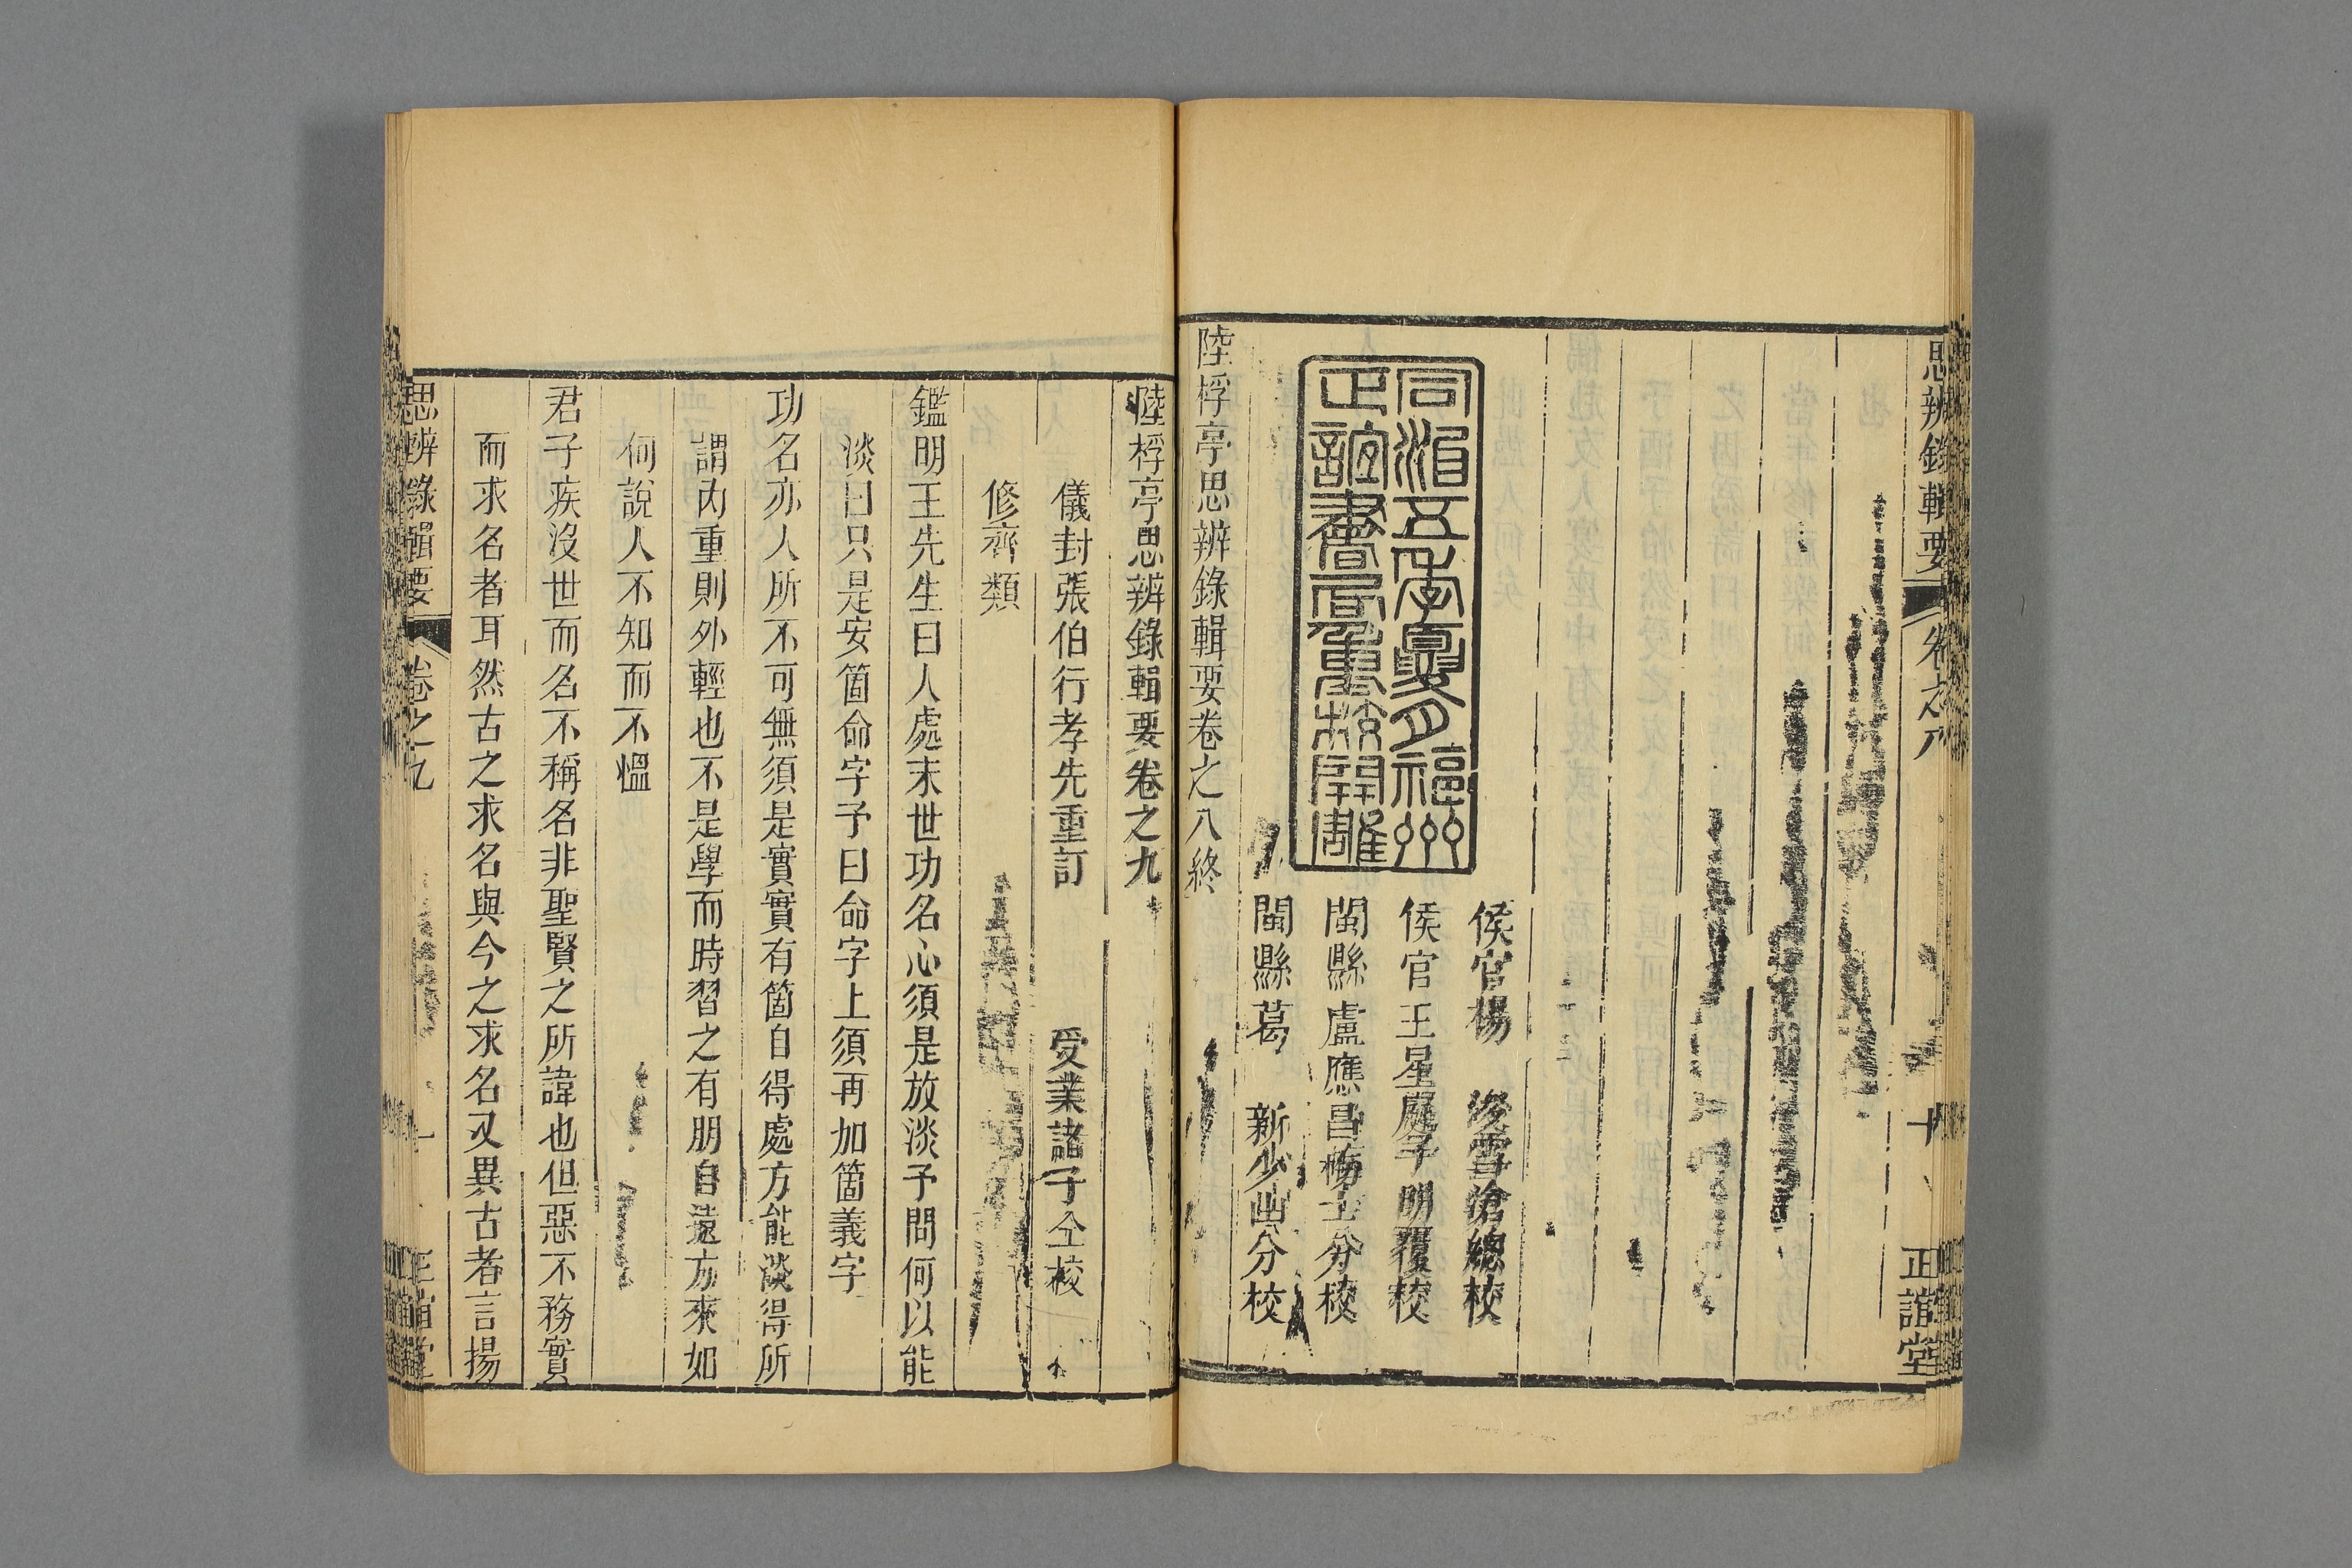 思辨錄輯要 卷之八 十 正誼堂
同治五年夏月福州
正誼書局重校開雕
侯官楊浚雪滄總校
侯官王星庭子明覆校
閩縣盧應昌士分校
閩縣葛新少山分校
陸桴亭思辨錄輯要卷之八終
陸桴亭思辨錄輯要卷之九
儀封張伯行孝先重訂 受業諸子仝校
修齊類
鑑明王先生曰人處末世功名心須是放淡予問何以能
淡曰只是安箇命字予曰命字上須再加箇義字
功名亦人所不可無須是實實有箇自得處方能淡得所
謂內重則外輕也不是學而時習之有朋自遠方來如
何說人不知而不慍
君子疾沒世而名不稱名非聖賢之所諱也但惡不務實
而求名者耳然古之求名與今之求名又異古者言揚
思辨錄輯要 卷之九 一 正誼堂